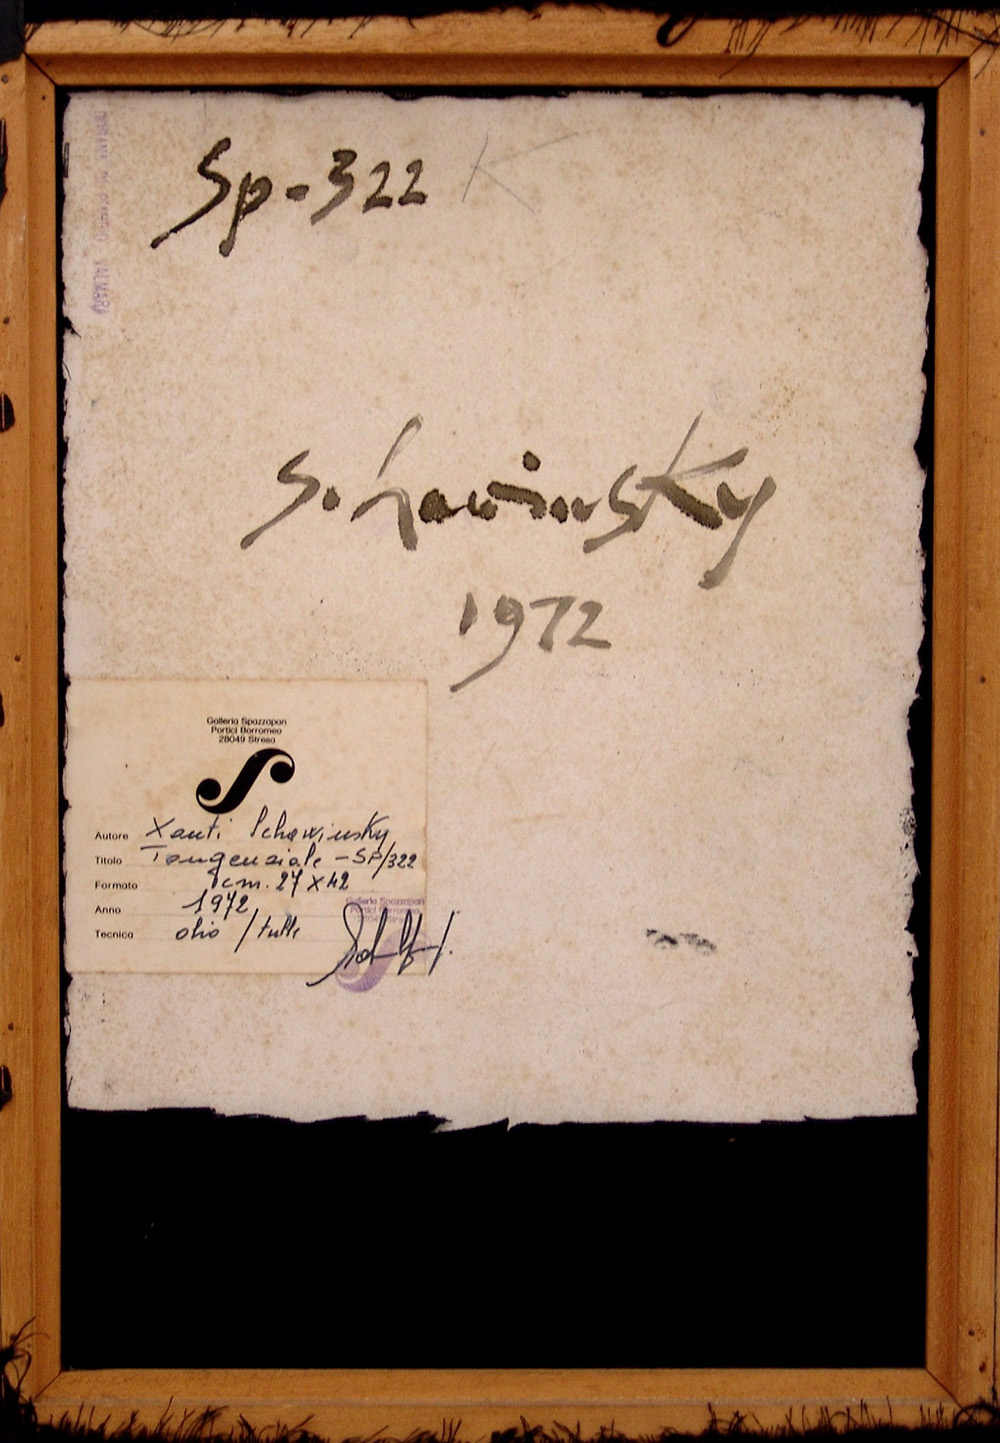 Sp-322 K
Schawinsky
1972
Galleria Spazzapan
Portici Borromeo
28049 Stresa
Autore Xanti Schawinsky
Titolo Tangenziale - SP/322
Formato cm. 27 x 42
Anno 1972
Tecnica olio / tulle
Galleria Spazzapan
Portici Borromeo
28049 Stresa